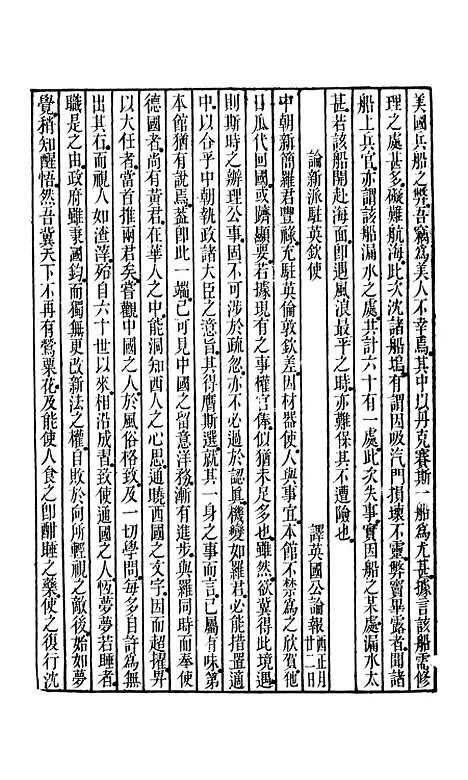 美國兵船之弊吾竊為美人不幸焉其中以丹克賽斯一船為尤甚據言該船需修
理之處甚多礙難航海此次沈諸船塢有謂因吸汽門損壞不靈弊竇畢露者聞諸
船上兵官亦謂該船漏水之處其計六十有一處此次失事實因船之某處漏水太
甚若該船開赴海面卽遇風浪最平之時亦難保其不遭險也
論新派駐英欽使 譯英國公論報 西正月廿二日
中朝新簡羅君豐祿充駐英倫敦欽差因材器使人與事宜本館不禁為之欣賀他
日瓜代回國或躋顯要若據現有之事權官俸似猶未足多也雖然欲冀得此境遇
則斯時之辦理公事固不可涉於疏忽亦不必過於認眞機變如羅君必能措置適
中以合乎中朝執政諸大臣之意旨其得膺斯選就其一身之事而言已屬有味第
本館猶有說焉蓋卽此一端已可見中國之留意洋務漸有進益與羅同時而奉使
德國者尚有黃君在華人之中能洞知西人之心思通曉西國之文字因而超擢畀
以大任者當首推兩君矣嘗觀中國之人於風俗格致及一切學問每多自許為無
出其右而視人如渣滓殆自六十世以來沿反成習致使通國之人恆夢夢若睡者
職是之由政府雖秉國鈞而獨無更改新法之權自敗於向所輕視之敵後始如夢
覺稍知醒悟然吾冀天下不再有鶯粟花及能使人食之卽酣睡之藥使之復行沈